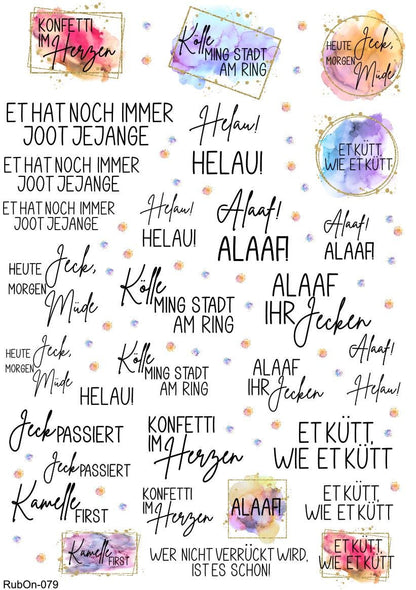 KONFETTI
IM Herzen
Kölle
MING STADT
AM RING
HEUTE Jeck,
MORGEN
Müde
ET HAT NOCH IMMER
JOOT JEJANGE
Helau!
HELAU!
ET KÜTT,
WIE ET KÜTT
ET HAT NOCH IMMER
JOOT JEJANGE
ET HAT NOCH IMMER
JOOT JEJANGE
Helau!
HELAU!
Alaaf!
ALAAF!
Alaaf!
ALAAF!
HEUTE Jeck,
MORGEN
Müde
Kölle
MING STADT
AM RING
ALAAF
IHR Jecken
HEUTE Jeck,
MORGEN
Müde
HELAU!
Kölle
MING STADT
AM RING
ALAAF
IHR Jecken
Alaaf!
Helau!
Jeck PASSIERT
Jeck PASSIERT
KONFETTI
IM Herzen
ET KÜTT,
WIE ET KÜTT
Kamelle
FIRST
KONFETTI
IM Herzen
ALAAF!
ET KÜTT,
WIE ET KÜTT
Kamelle
FIRST
WER NICHT VERRÜCKT WIRD,
IST ES SCHON!
ET KÜTT,
WIE ET KÜTT
RubOn-079